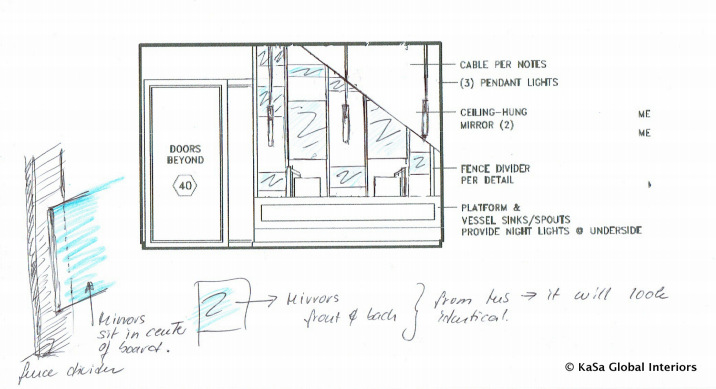 CABLE PER NOTES
(3) PENDANT LIGHTS
CEILING-HUNG
MIRROR (2)
ME
ME
DOORS
BEYOND
40
FENCE DIVIDER
PER DETAIL
PLATFORM &
VESSEL SINKS/SPOUTS
PROVIDE NIGHT LIGHTS @ UNDERSIDE
Mirrors
sit in center
of board.
fence divider
Mirrors
front & back
from this → it will look
identical.
© KaSa Global Interiors